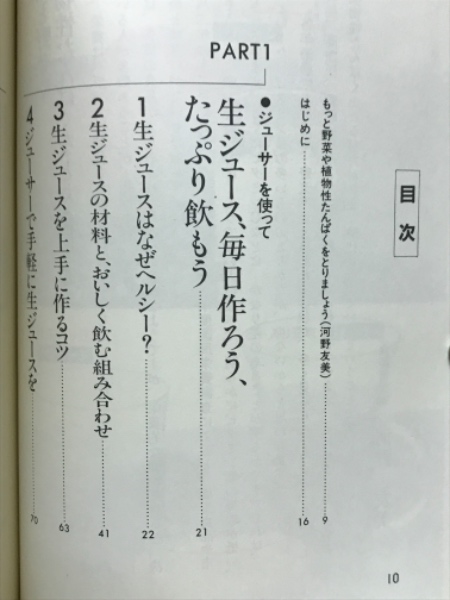 目次
もっと野菜や植物性たんぱくをとりましょう(河野友美) 9
はじめに 16
PART1
●ジューサーを使って
生ジュース、毎日作ろう、
たっぷり飲もう 21
1 生ジュースはなぜヘルシー? 22
2 生ジュースの材料と、おいしく飲む組み合わせ 41
3 生ジュースを上手に作るコツ 63
4 ジューサーで手軽に生ジュースを 70
10